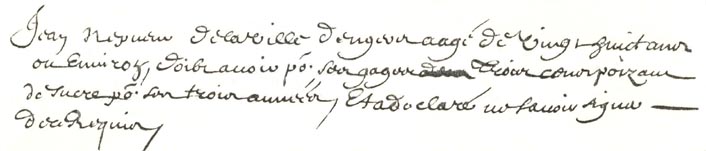 Jean Nepueu delaville dengers aagé de vingt huict ans
ou Environ, doibt auoir po. ses gages Trois cens po. par an
de sucre po. ses trois années, Et a declaré ne sauoir signer
de ce Requis